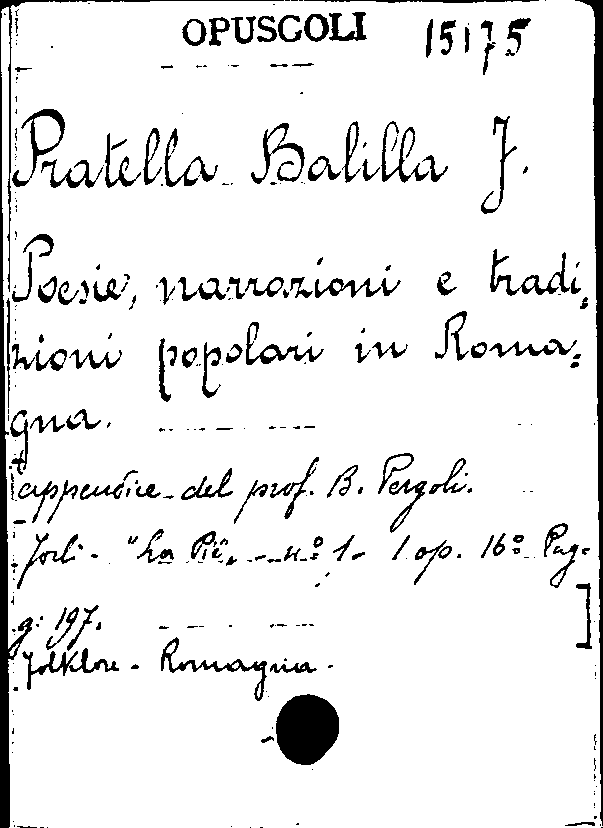 OPUSCOLI 15175
Pratella Balilla F.
Poesie, narrazioni e tradi=
zioni popolari in Roma=
gna.
appendice del prof. B. Pergoli.
Forlì - "La Piê" - n.º 1 - 1 op. 16º Pag-
g: 197.
Folklore - Romagna.